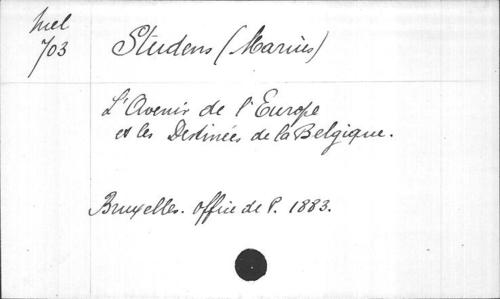 Mel
703
Studens (Marius)
L'Avenir de l'Europe
et les Destinées de la Belgique.
Bruxelles. Office de P. 1883.